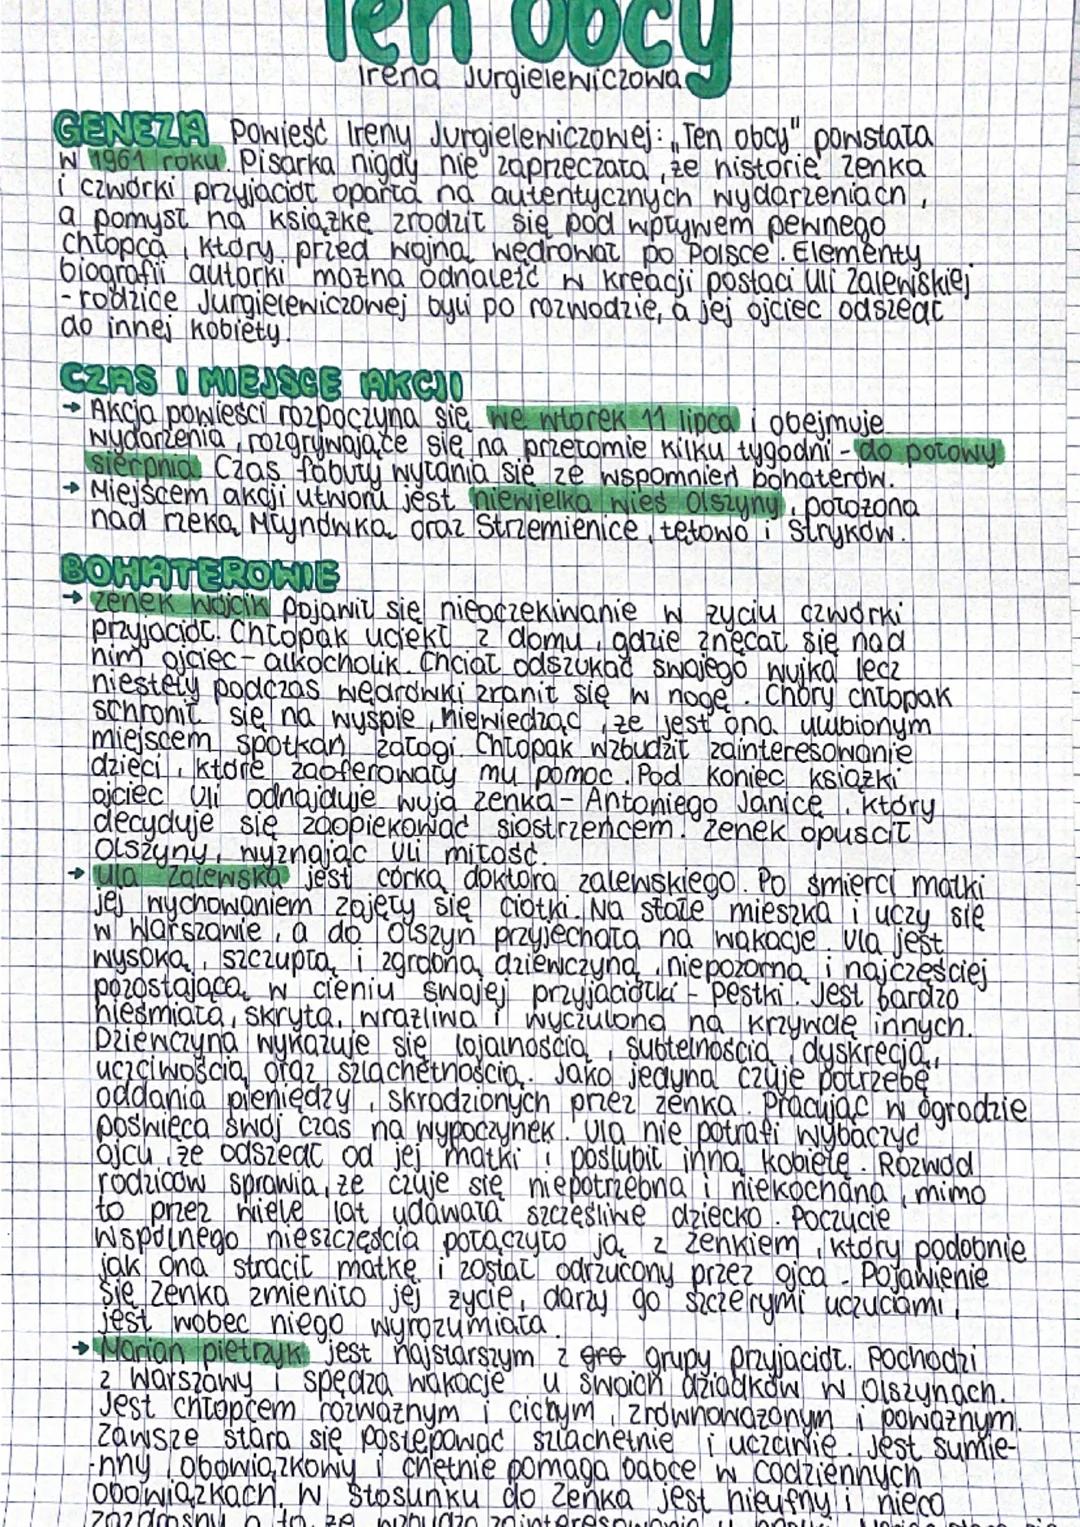 Ten obcy
Irena Jurgielewiczowa
GENEZA Powieść Ireny Jurgielewiczowej: „Ten obcy" powstała
w 1961 roku. Pisarka nigdy nie zaprzeczała, że historię Zenka
i czwórki przyjaciół oparta na autentycznych wydarzeniach,
a pomysł na książkę zrodził się pod wpływem pewnego
chłopca, który przed wojną wędrował po Polsce. Elementy
biografii autorki można odnaleźć w kreacji postaci Uli Zalewskiej
- rodzice Jurgielewiczowej byli po rozwodzie, a jej ojciec odszedł
do innej kobiety.
CZAS I MIEJSCE AKCJI
→ Akcja powieści rozpoczyna się we wtorek 11 lipca i obejmuje
wydarzenia, rozgrywające się na przełomie kilku tygodni - do połowy
sierpnia. Czas fabuły wyłania się ze wspomnień bohaterów.
→ Miejscem akcji utworu jest niewielka wieś Olszyny, położona
nad rzeką Młynówką oraz Strzemienice, Łętowo i Stryków.
BOHATEROWIE
→ Zenek Wójcik pojawił się nieoczekiwanie w życiu czwórki
przyjaciół. Chłopak uciekł z domu, gdzie znęcał się nad
nim ojciec-alkocholik. Chciał odszukać swojego wujka lecz
niestety podczas wędrówki zranił się w nogę. Chory chłopak
schronił się na wyspie, niewiedząc, że jest ona ulubionym
miejscem spotkań załogi. Chłopak wzbudził zainteresowanie
dzieci, które zaoferowały mu pomoc. Pod koniec książki
ojciec Uli odnajduje wuja Zenka - Antoniego Janicę, który
decyduje się zaopiekować siostrzeńcem. Zenek opuścił
Olszyny, wyznając Uli miłość.
→ Ula Zalewska jest córką doktora Zalewskiego. Po śmierci matki
jej wychowaniem zajęły się ciotki. Na stałe mieszka i uczy się
w Warszawie, a do Olszyn przyjechała na wakacje. Ula jest
wysoką, szczupłą i zgrabną dziewczyną, niepozorną i najczęściej
pozostającą w cieniu swojej przyjaciółki - Pestki. Jest bardzo
nieśmiała, skryta, wrażliwa i wyczulona na krzywdę innych.
Dziewczyna wykazuje się lojalnością, subtelnością, dyskrecją,
uczciwością oraz szlachetnością. Jako jedyna czuje potrzebę
oddania pieniędzy, skradzionych przez Zenka. Pracując w ogrodzie
poświęca swój czas na wypoczynek. Ula nie potrafi wybaczyć
ojcu, że odszedł od jej matki i poślubił inną kobietę. Rozwód
rodziców sprawia, że czuje się niepotrzebna i niekochana, mimo
to przez wiele lat udawała szczęśliwe dziecko. Poczucie
wspólnego nieszczęścia połączyło ją z Zenkiem, który podobnie
jak ona stracił matkę i został odrzucony przez ojca. Pojawienie
się Zenka zmieniło jej życie, darzy go szczerymi uczuciami,
jest wobec niego wyrozumiała.
→ Marian pietrzyk jest najstarszym z grupy przyjaciół. Pochodzi
z Warszawy i spędza wakacje u swoich dziadków w Olszynach.
Jest chłopcem rozważnym i cichym, zrównoważonym i poważnym.
Zawsze stara się postępować szlachetnie i uczciwie. Jest sumie-
-nny, obowiązkowy i chętnie pomaga babce w codziennych
obowiązkach. W stosunku do Zenka jest nieufny i nieco
zazdrosny o to, że wzbudza zainteresowanie u